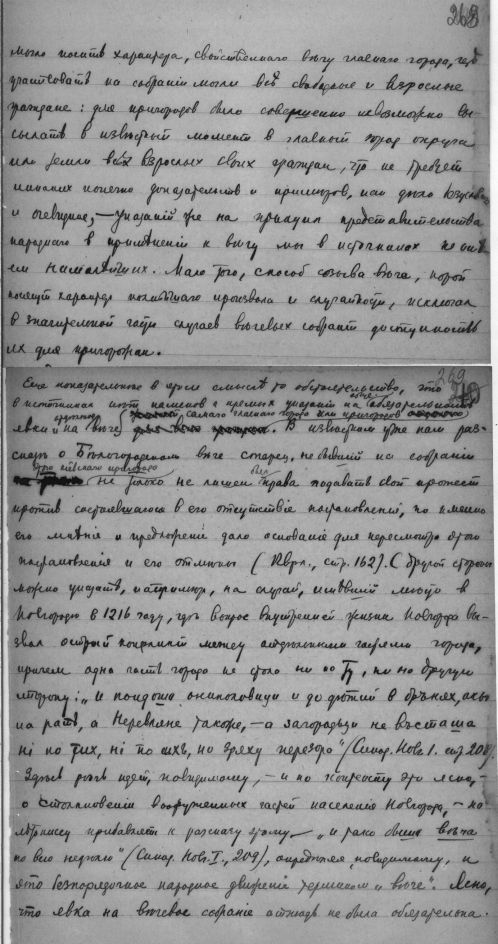 268
могло носить характера, свойственнаго вѣчу главнаго города, гдѣ
участвовать на собранiи могли всѣ свободные и взрослые
граждане: для пригородовъ было совершенно невозможно вы-
сылать в извѣстный моментъ в главный городъ округа
или земли всѣхъ взрослыхъ своихъ гражданъ, что не требуетъ
никакихъ конечно доказательствъ и примѣровъ, как дѣло
и очевидное, — указанiй же на принципъ представительства
народнаго в примѣненiи к вѣчу мы в источникахъ не
. Мало того, способъ созыва вѣча, порой
носящiй характеръ полнѣйшаго произвола и случайности, исключалъ
в значительной части случаевъ вѣчевыхъ собранiй доступность
ихъ для пригорожанъ.
269
Еще показательнѣе в этомъ смыслѣ то обстоятельство, что
в источникахъ нѣтъ намековъ и прямыхъ указанiй на обязательность
явки на вѣче самаго главнаго города или пригородовъ
. В извѣстномъ уже намъ раз-
сказѣ о Бѣлогородскомъ вѣче старецъ, не бывшiй на собранiи
этого кiевскаго пригорода
не только не лишенъ был права подавать свой протестъ
противъ состоявшагося в его отсутствiе постановленiя, но именно
его мнѣнiе и предложенiе дало основанiе для пересмотра этого
постановленiя и его отмѣны ( Лавр., стр. 162). С другой стороны
можно указать, напримѣръ, на случай, имѣвшiй мѣсто в
Новгородѣ в 1216 году, гдѣ вопросъ внутренней жизни Новгорода вы-
звалъ острый конфликтъ между отдѣльными частями города,
причемъ одна часть города не стала ни по ту, ни по другую
сторону: „и поидоша ониполовици и до дѣтий в брънѣхъ, акы
на рать, а Неревляне такоже, — а загородьци не въсташа
нi по сихъ, нi по онхъ, но зряху перезора" (Синод. Новг. I. стр. 208).
Здѣсь рѣчь идетъ, повидимому, — и по контексту это ясно, —
о столкновенiи вооруженныхъ частей населенiя Новгорода, — но
лѣтописецъ прибавляетъ к разсказу этому — „и тако быша вѣча
по всю недѣлю" (Синод. Новг. I., 209), опредѣляя, повидимому, и
это безпорядочное народное движенiе терминомъ „вѣче". Ясно,
что явка на вѣчевое собранiе отнюдь не была обязательна.